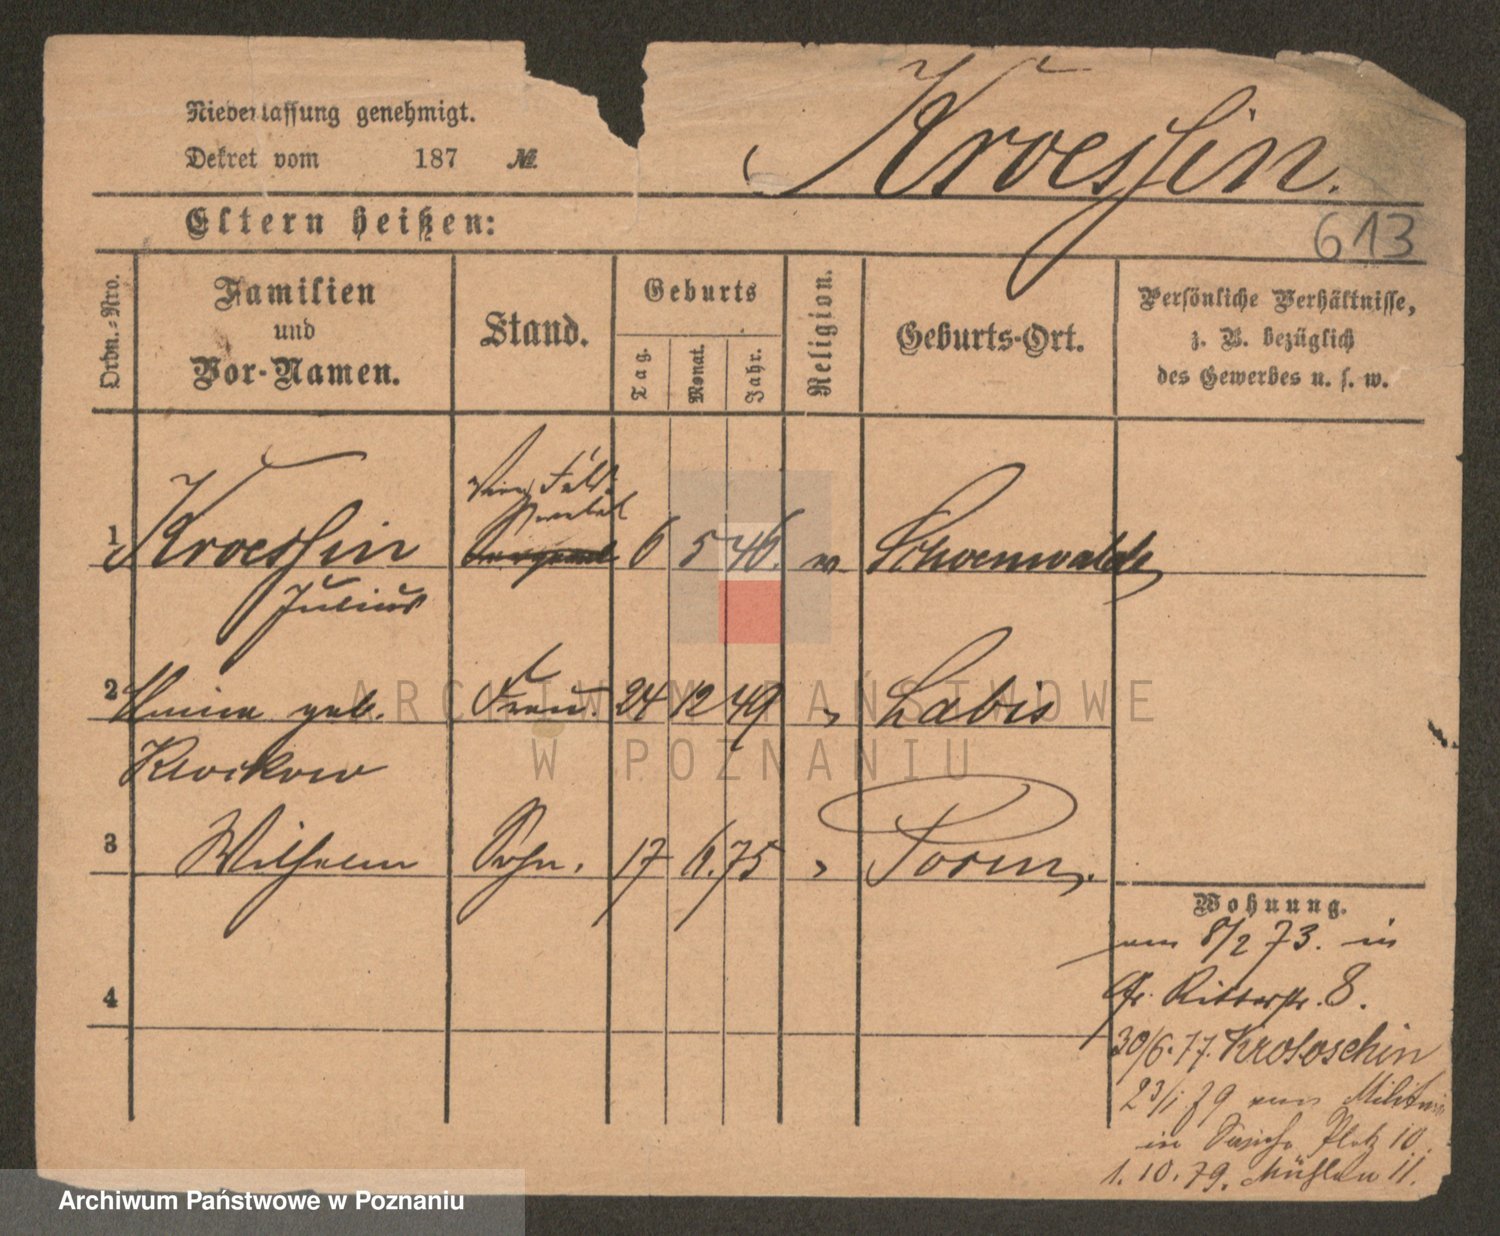 Niederlassung genehmigt.
Dekret vom 187 №.
Kroessin.
613
Eltern heißen:
Ordn.=Nro.
Familien
und
Vor-Namen.
Stand.
Geburts
Tag.
Monat.
Jahr.
Religion.
Geburts-Ort.
Persönliche Verhältnisse,
z. B. bezüglich
des Gewerbes u. s. w.
1 Kroessin 6 5 46. Schoenwalde
Julius
2 geb. Frau. 24 12 49 Labis
3 Wilhelm Sohn. 17 6. 75 Posen.
4
Wohnung.
8/2 73. in
Gr. Ritterstr. 8.
30/6. 77. Krotoschin
23/1 79 vom Militair
in Platz 10.
1. 10. 79. Mühlen 11.
ARCHIWUM PAŃSTWOWE
W POZNANIU
Archiwum Państwowe w Poznaniu